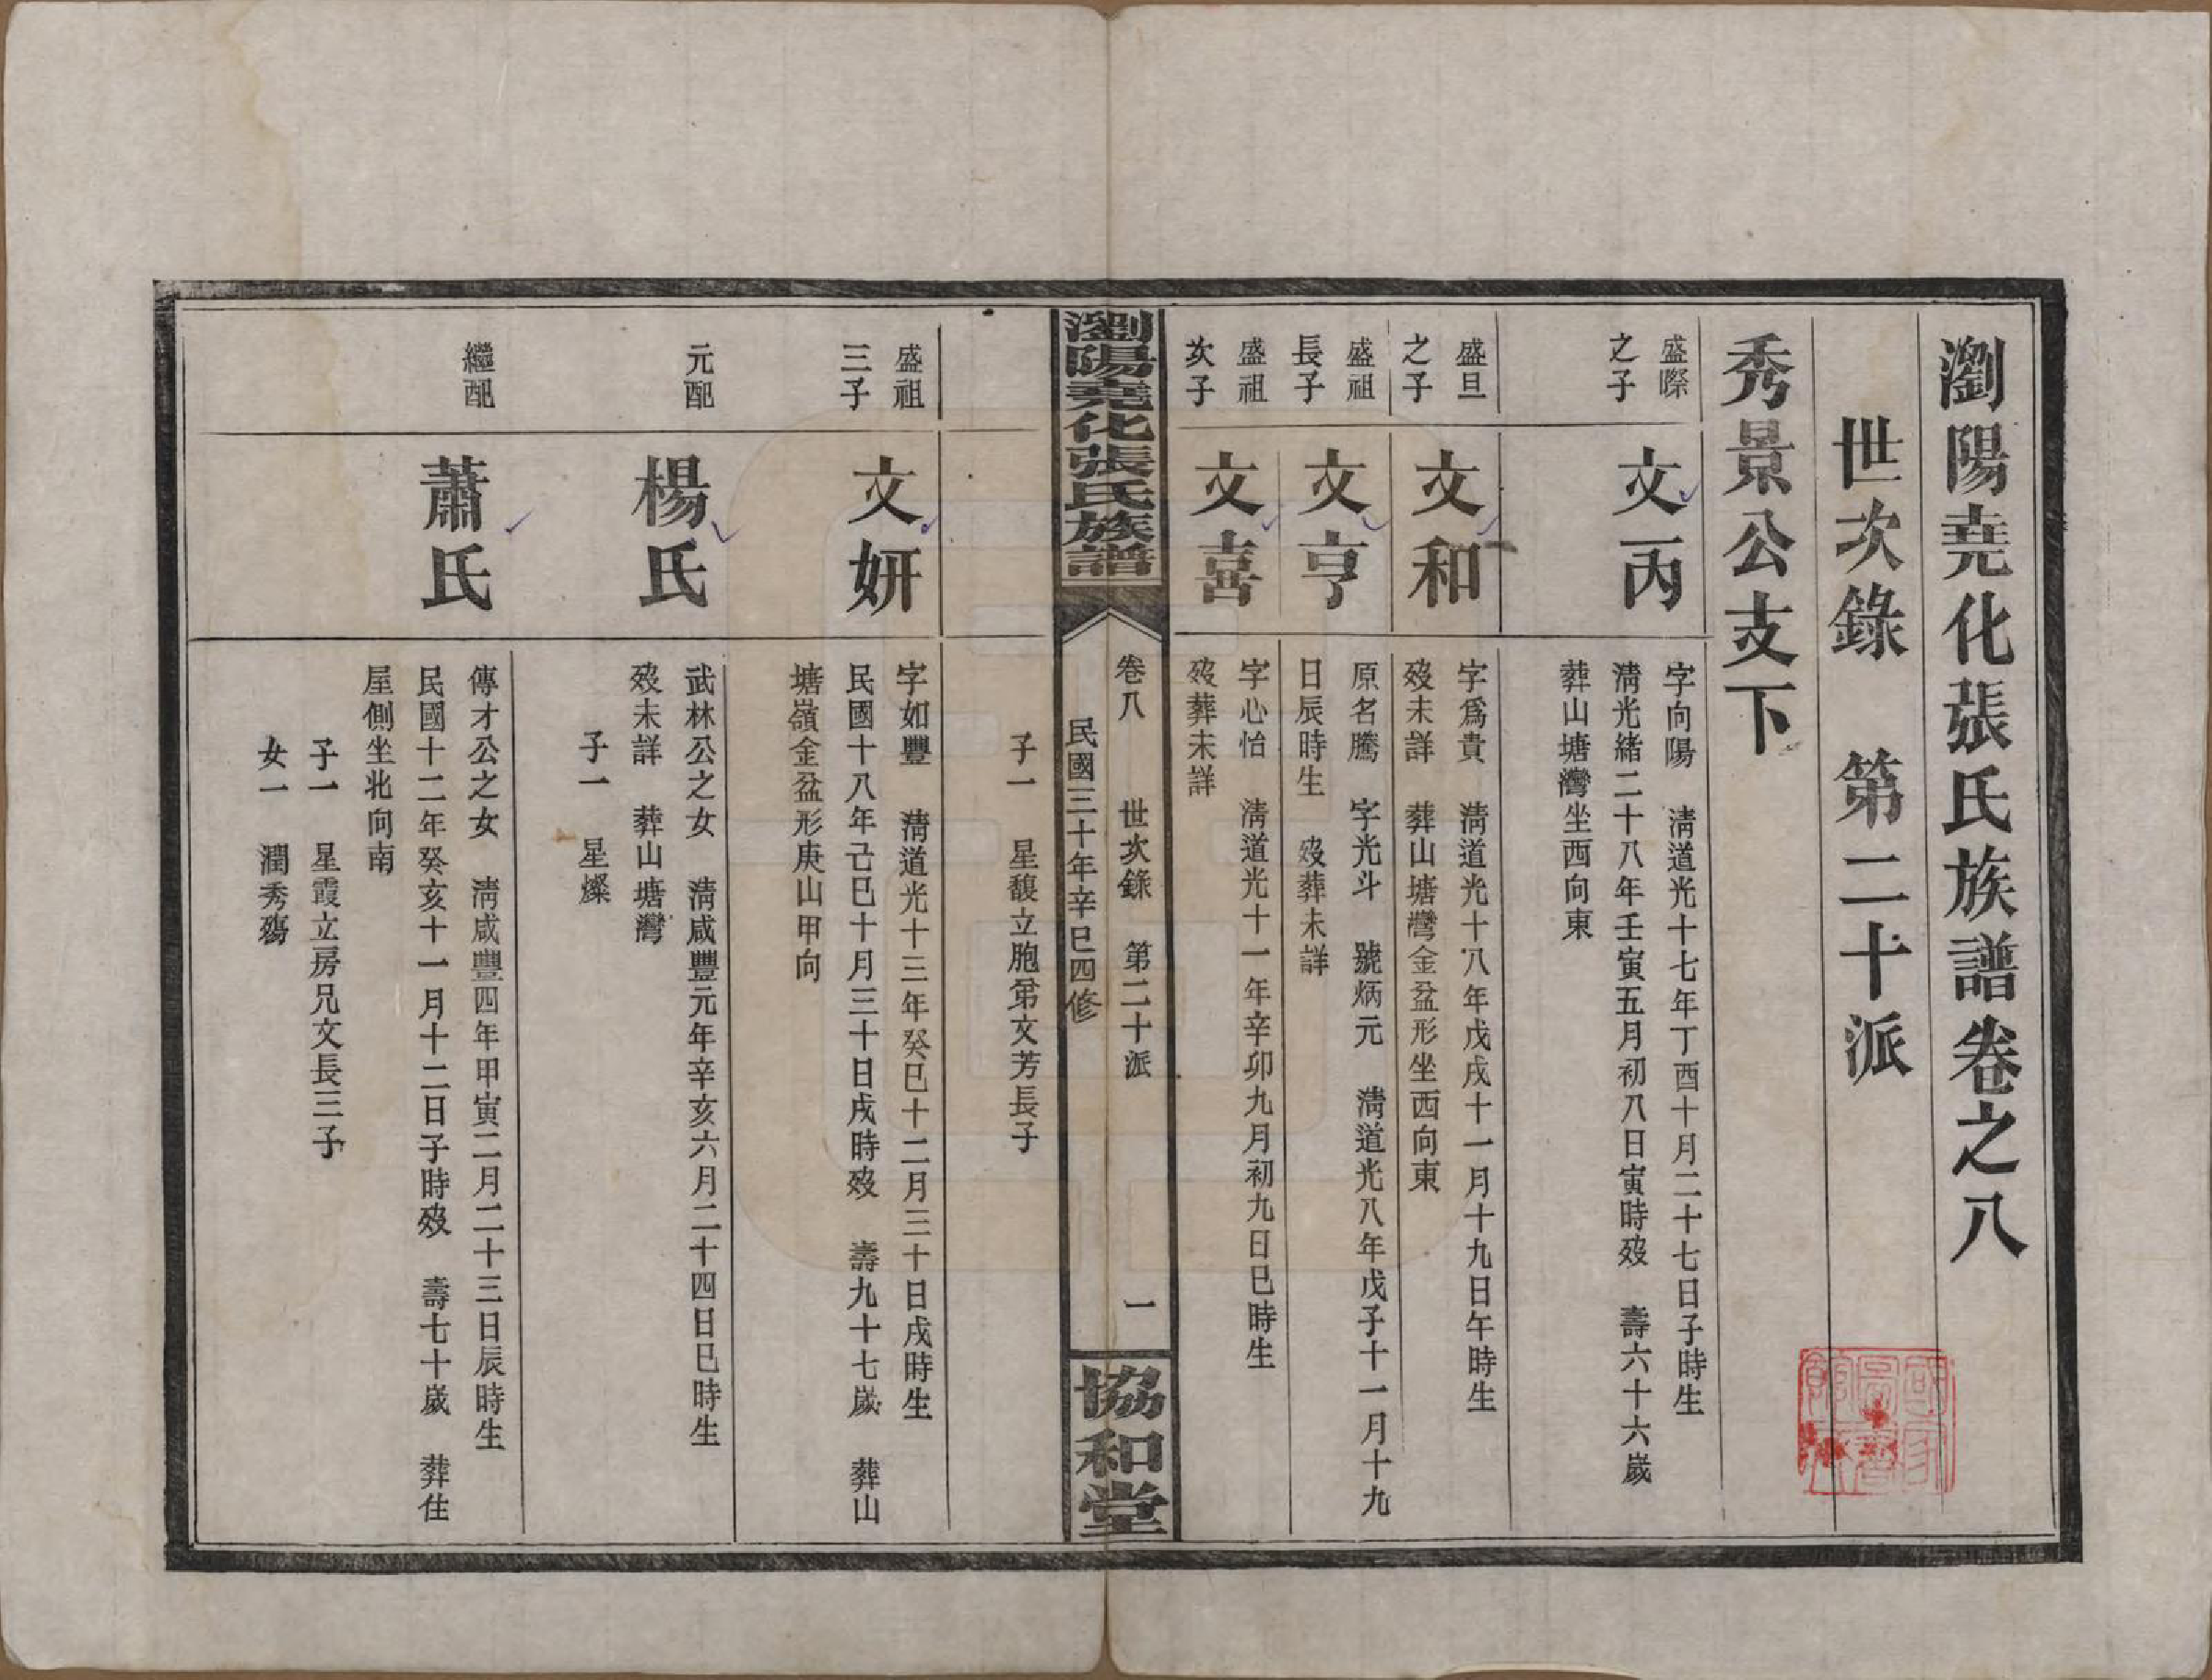 瀏陽堯化張氏族譜卷之八
世次錄　第二十派
秀景公支下
盛際
之子
文丙
字向陽　清道光十七年丁酉十月二十七日子時生
清光緒二十八年壬寅五月初八日寅時歿　壽六十六歲
葬山塘灣坐西向東
盛旦
之子
文和
字爲貴　清道光十八年戊戌十一月十九日午時生
歿未詳　葬山塘灣金盆形坐西向東
盛祖
長子
文亨
原名騰　字光斗　號炳元　清道光八年戊子十一月十九
日辰時生　歿葬未詳
盛祖
次子
文喜
字心怡　清道光十一年辛卯九月初九日巳時生
歿葬未詳
瀏陽堯化張氏族譜
卷八　世次錄　第二十派　一
民國三十年辛巳四修
協和堂
子一　星馥立胞弟文芳長子
盛祖
三子
文妍
字如豐　清道光十三年癸巳十二月三十日戌時生
民國十八年己巳十月三十日戌時歿　壽九十七歲　葬山
塘嶺金盆形庚山甲向
元配
楊氏
武林公之女　清咸豐元年辛亥六月二十四日巳時生
歿未詳　葬山塘灣
子一　星燦
繼配
蕭氏
傳才公之女　清咸豐四年甲寅二月二十三日辰時生
民國十二年癸亥十一月十二日子時歿　壽七十歲　葬住
屋側坐北向南
子一　星霞立房兄文長三子
女一　潤秀殤